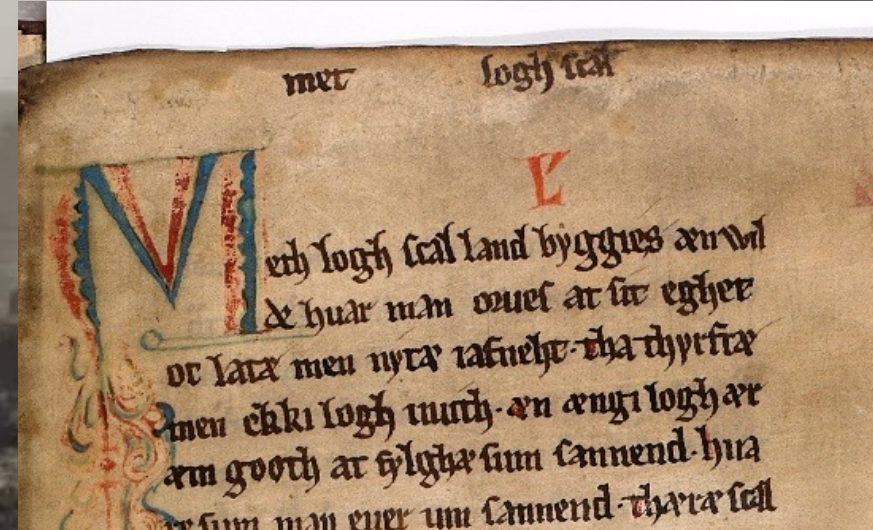 met logh scal
L
Meth logh scal land byggies æn wil
dæ huar man orues at sit eghet
oc latæ men nytæ iafneht. tha thyrftæ
men ekki logh uuith. æn ængi logh ær
æm gooth at fylghæ sum sannend. hua
re sum man euer um sannend. thæræ scal